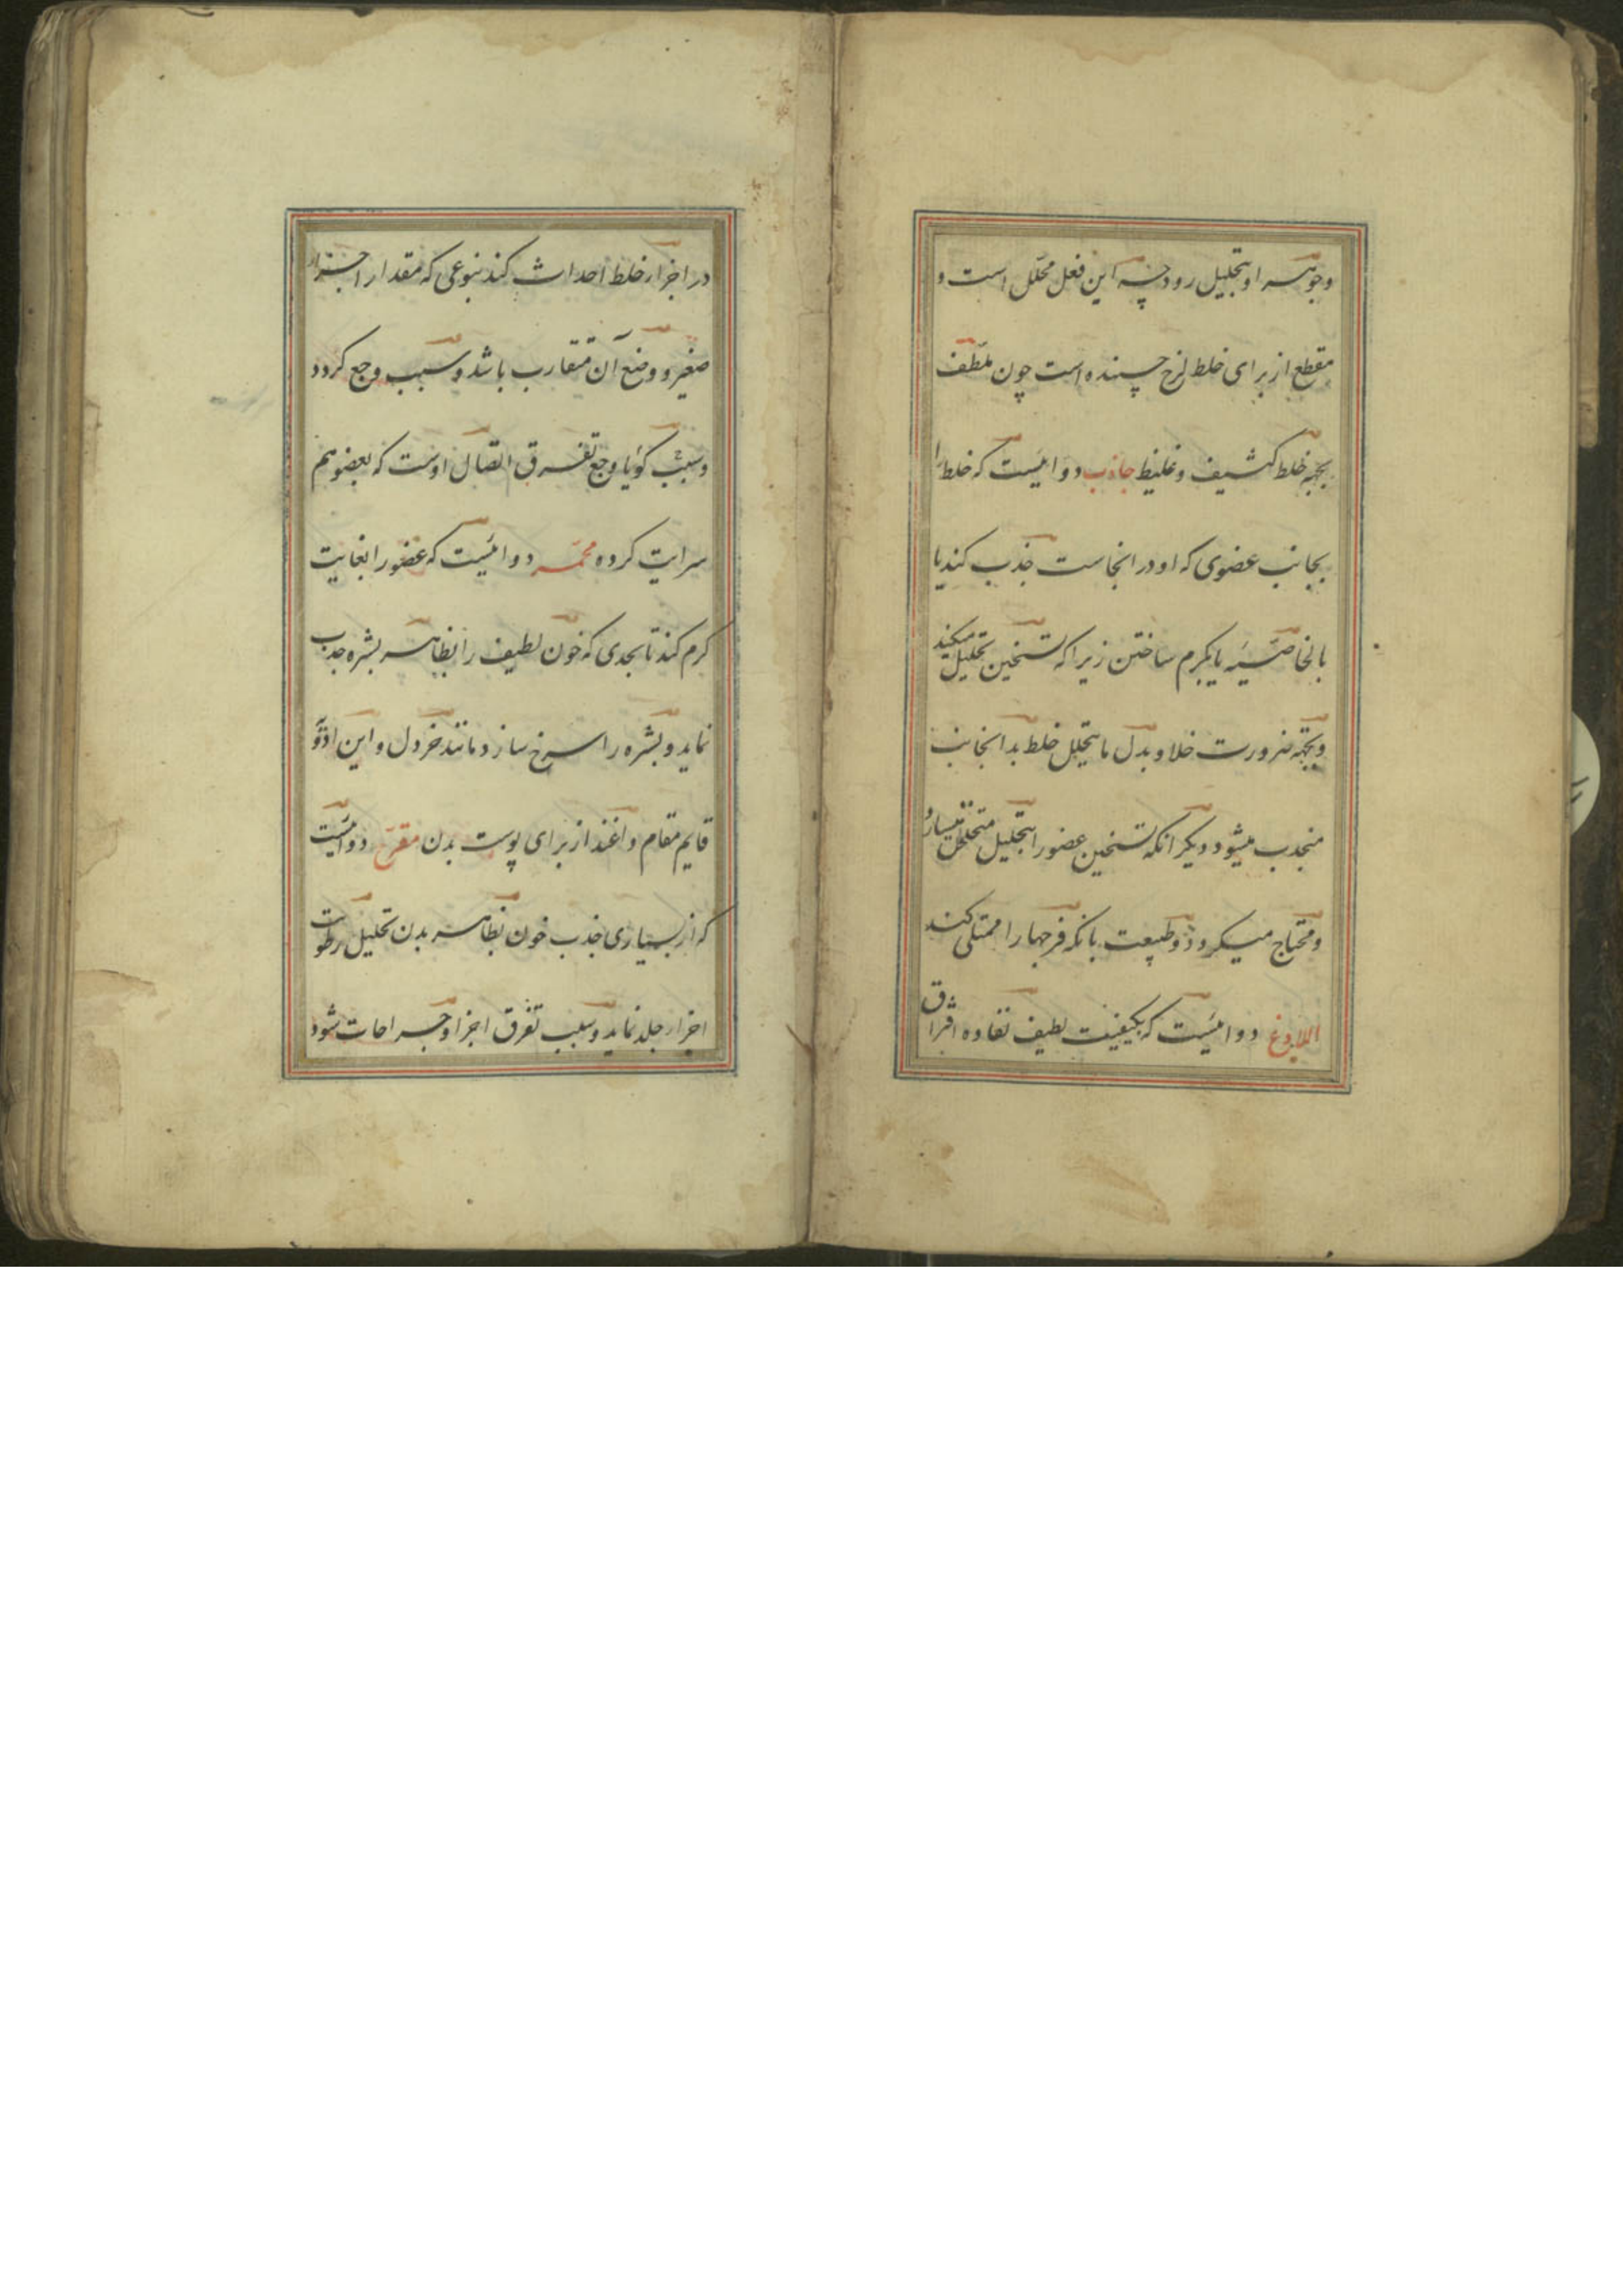 وجوهر او بتحلیل رود چه این فعل محلل است و
مقطع از برای خلط لزج چسپنده است چون ملطف
بجهة خلط کثیف و غلیظ جاذب دوائیست که خلط را
بجانب عضوی که او در انجاست جذب کند یا
بالخاصیه یا بکرم ساختن زیرا که تسخین تحلیل میکند
و بجهة ضرورت خلا و بدل ما یتحلل خلط بدانجانب
منجذب میشود دیکر انکه تسخین عضو را بتحلیل متخلخل میسازد
و محتاج میکردد و طبیعت بانکه فرجها را ممتلی کند
اللاذع دوائیست که بکیفیت لطیف نفاذه افتراق
در اجزاء خلط احداث کند بنوعی که مقدار اجزاء
صغیر و وضع آن متقارب باشد و سبب وجع کردد
و سبب کویا وجع تفرق اتصال اوست که بعضو هم
سرایت کرده محمر دوائیست که عضو را بغایت
کرم کند تا بحدی که خون لطیف را بظاهر بشره جذب
نماید و بشره را سرخ سازد مانند خردل و این ادویه
قایم مقام داغند از برای پوست بدن مقرح دوائیست
که از بسیاری جذب خون بظاهر بدن تحلیل رطوبات
اجزاء جلد نماید و سبب تفرق اجزا و جراحات شود